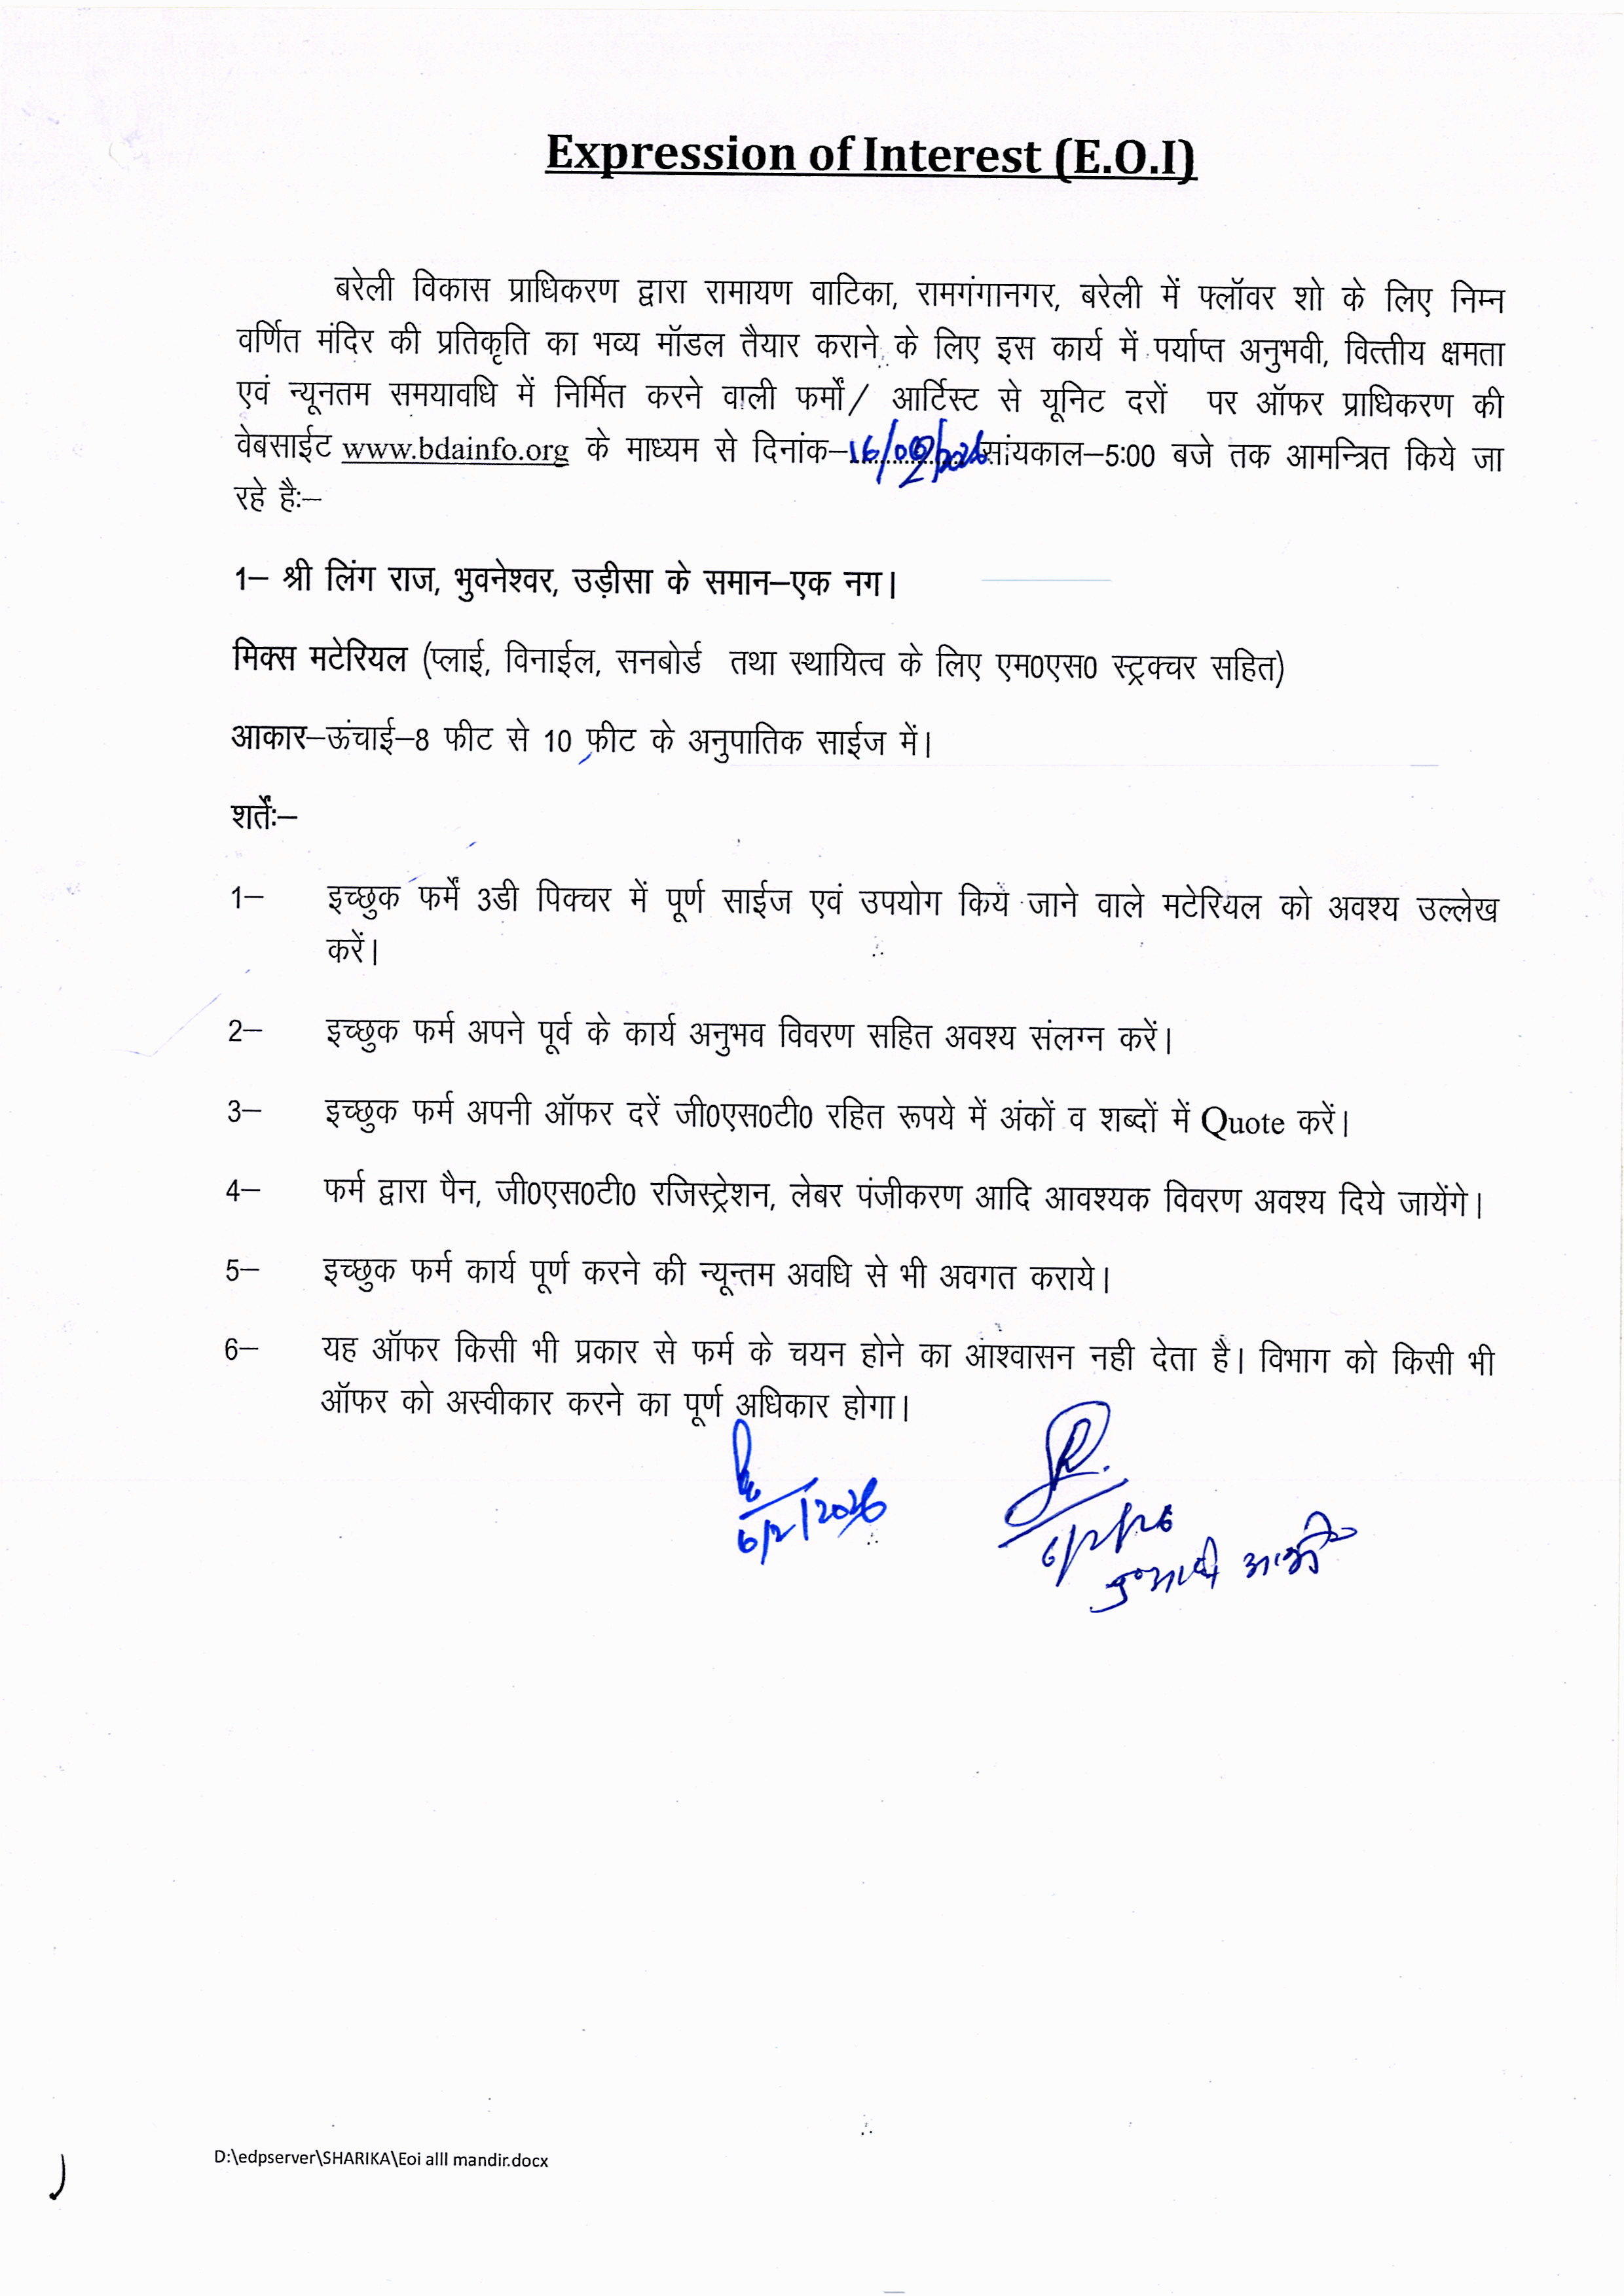 Expression of Interest (E.O.I)
बरेली विकास प्राधिकरण द्वारा रामायण वाटिका, रामगंगानगर, बरेली में फ्लॉवर शो के लिए निम्न
वर्णित मंदिर की प्रतिकृति का भव्य मॉडल तैयार कराने के लिए इस कार्य में पर्याप्त अनुभवी, वित्तीय क्षमता
एवं न्यूनतम समयावधि में निर्मित करने वाली फर्मों/ आर्टिस्ट से यूनिट दरों पर ऑफर प्राधिकरण की
वेबसाईट www.bdainfo.org के माध्यम से दिनांक–16/02/2026 सांयकाल–5:00 बजे तक आमन्त्रित किये जा
रहे हैः–
1– श्री लिंग राज, भुवनेश्वर, उड़ीसा के समान–एक नग।
मिक्स मटेरियल (प्लाई, विनाईल, सनबोर्ड तथा स्थायित्व के लिए एम0एस0 स्ट्रक्चर सहित)
आकार–ऊंचाई–8 फीट से 10 फीट के अनुपातिक साईज में।
शर्तेंः–
1– इच्छुक फर्में 3डी पिक्चर में पूर्ण साईज एवं उपयोग किये जाने वाले मटेरियल को अवश्य उल्लेख
करें।
2– इच्छुक फर्म अपने पूर्व के कार्य अनुभव विवरण सहित अवश्य संलग्न करें।
3– इच्छुक फर्म अपनी ऑफर दरें जी0एस0टी0 रहित रूपये में अंकों व शब्दों में Quote करें।
4– फर्म द्वारा पैन, जी0एस0टी0 रजिस्ट्रेशन, लेबर पंजीकरण आदि आवश्यक विवरण अवश्य दिये जायेंगे।
5– इच्छुक फर्म कार्य पूर्ण करने की न्यून्तम अवधि से भी अवगत कराये।
6– यह ऑफर किसी भी प्रकार से फर्म के चयन होने का आश्वासन नही देता है। विभाग को किसी भी
ऑफर को अस्वीकार करने का पूर्ण अधिकार होगा।
6/2/2026
6/2/26
D:\edpserver\SHARIKA\Eoi alll mandir.docx